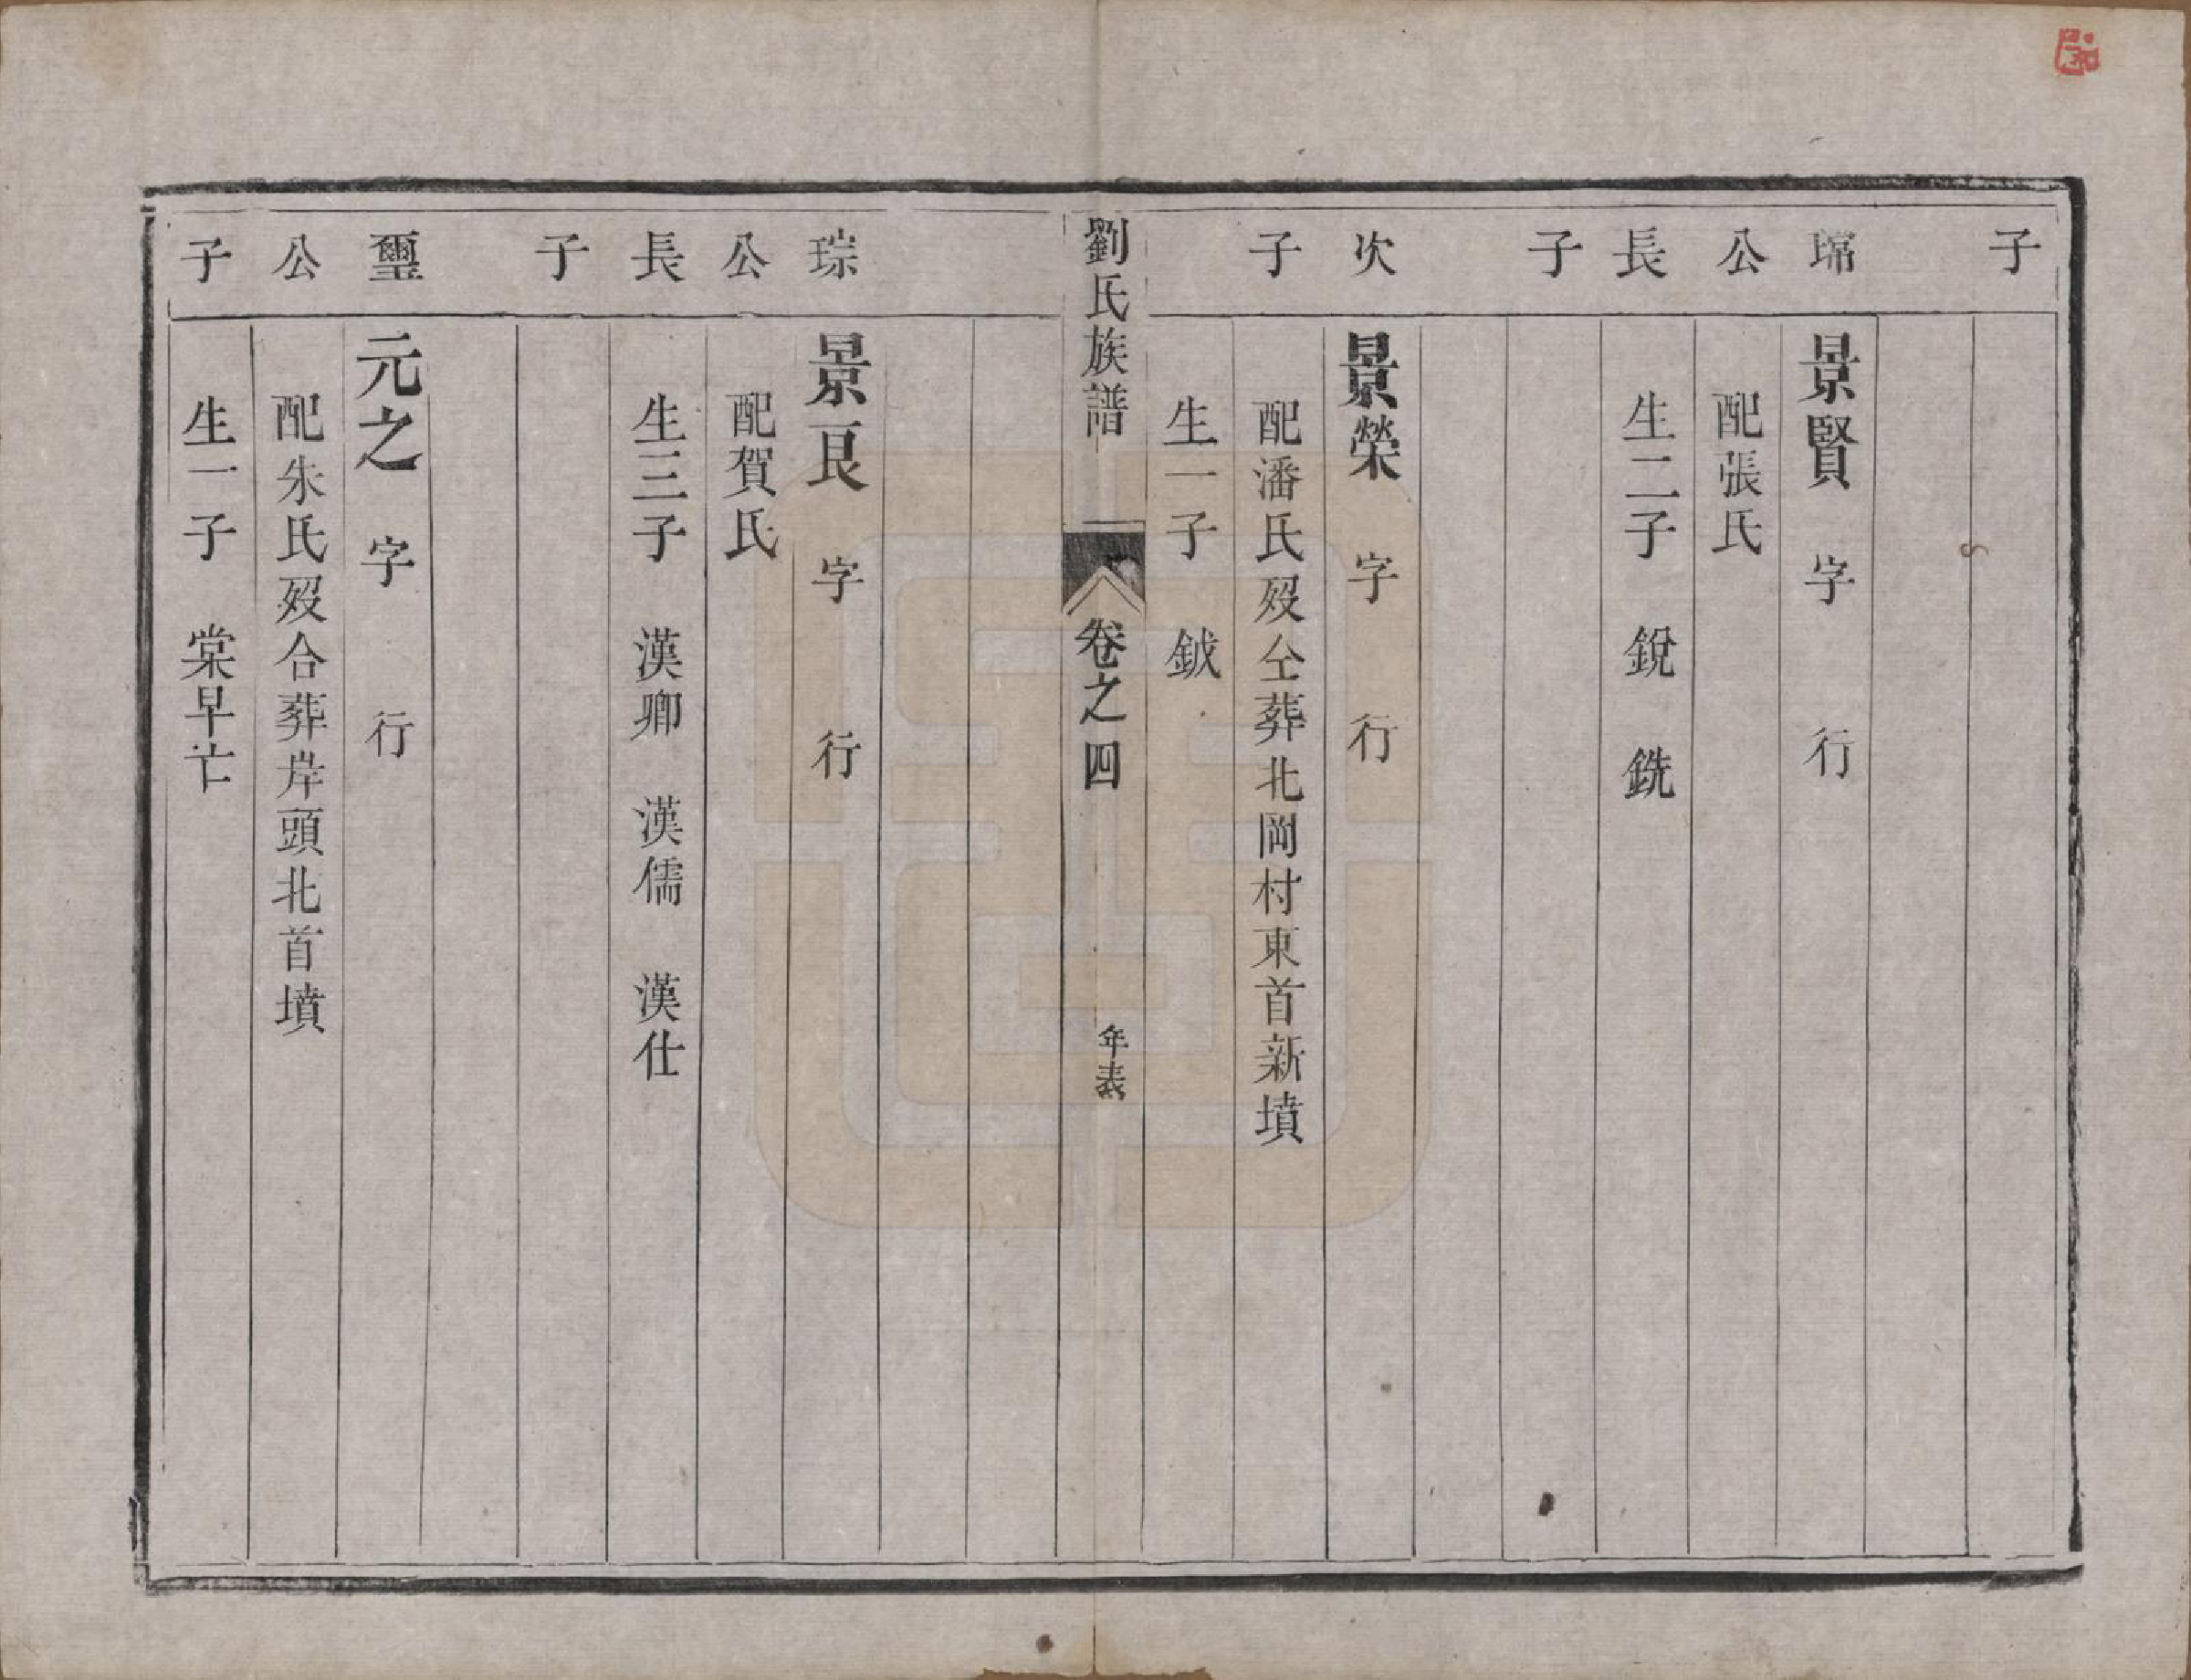 子
瑞 景賢 字 行
公 配張氏
長 生二子 銳 銑
子
次 景榮 字 行
子 配潘氏歿仝葬北岡村東首新墳
生一子 鉞
劉氏族譜 卷之四 年表
琮 景良 字 行
公 配賀氏
長 生三子 漢卿 漢儒 漢仕
子
璽 元之 字 行
公 配朱氏歿合葬岸頭北首墳
子 生一子 棠早亡